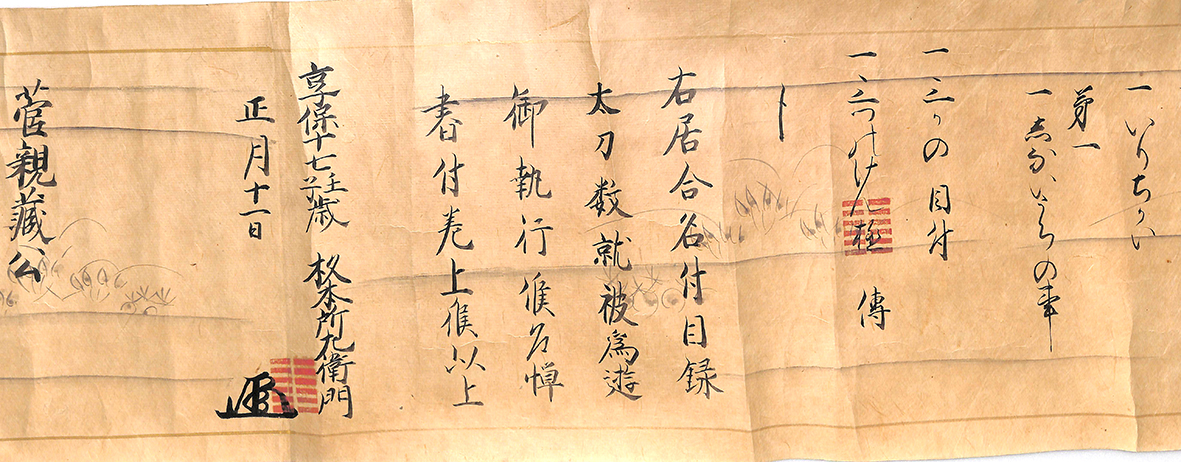 一 いりちかい
第一
一 志ないくらの事
一 三ツの 目付
一 三つのけん 極 傳
右居合名付目録
太刀数就被為遊
御執行候不憚
書付差上候以上
享保十七壬子歳 杦本所左衛門
正月十一日
菅親蔵公